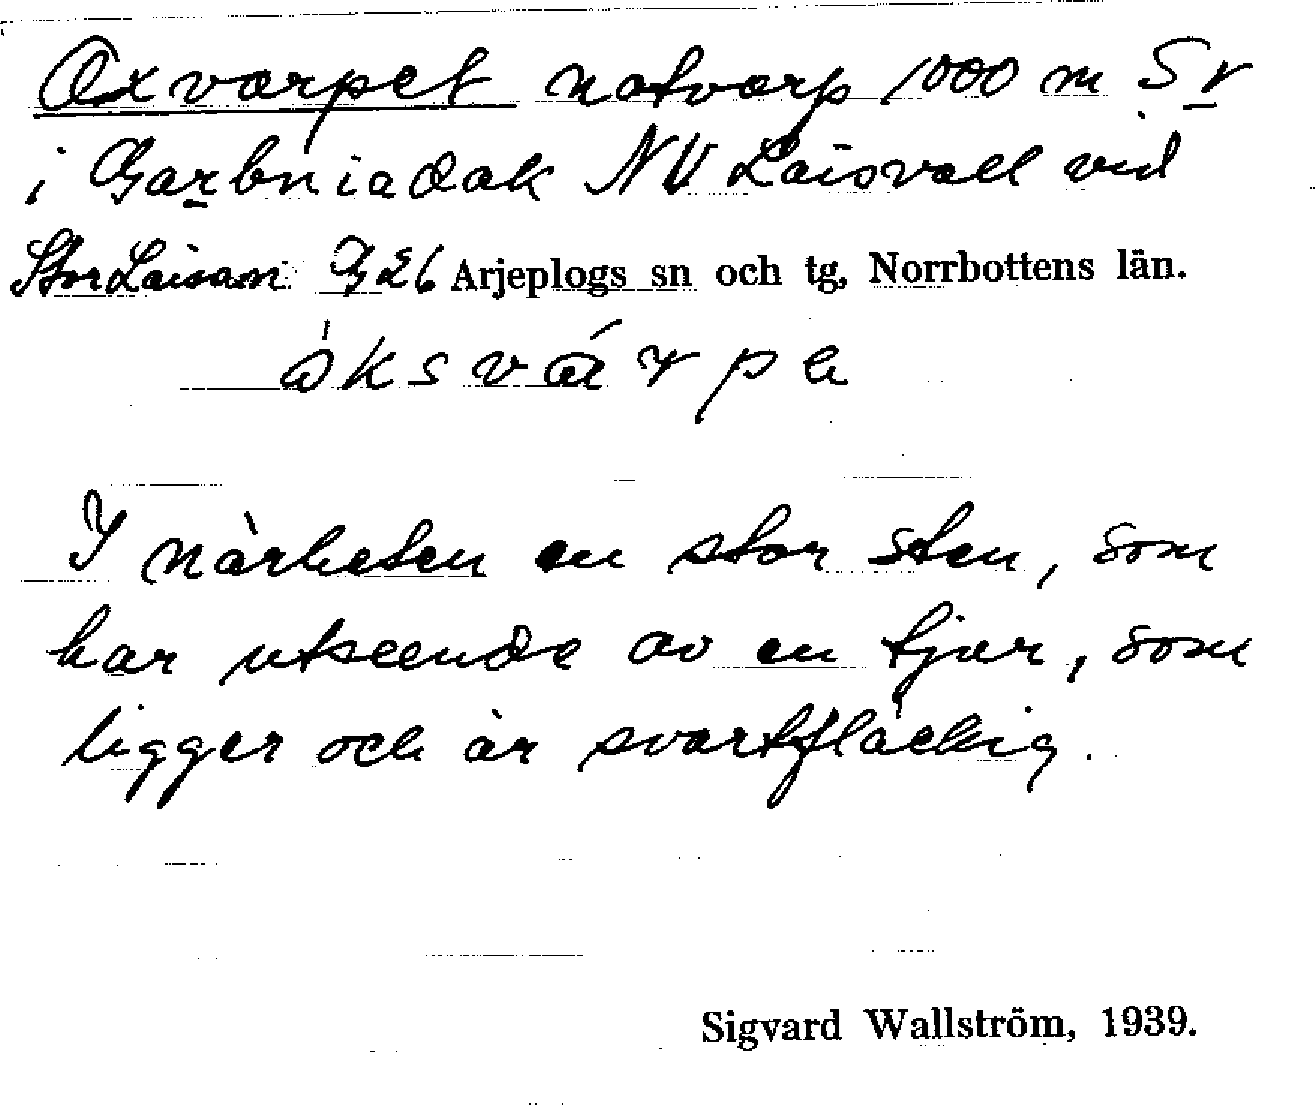 Oxvarpet notvarp 1000 m S v
i Garbniadak NV Laisvall vid
Stor Laisan G26 Arjeplogs sn och tg, Norrbottens län.
òksvárpe
I närheten en stor sten, som
har utseende av en tjur, som
ligger och är svartfläckig.
Sigvard Wallström, 1939.